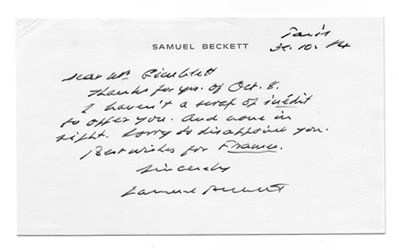 SAMUEL BECKETT
Paris
31.10.
Dear Mr
Thanks for yrs. of Oct. 8.
I haven't a scrap of inédit
to offer you. And none in
sight. Sorry to disappoint you.
Best wishes for Frames.
Sincerely
Samuel Beckett